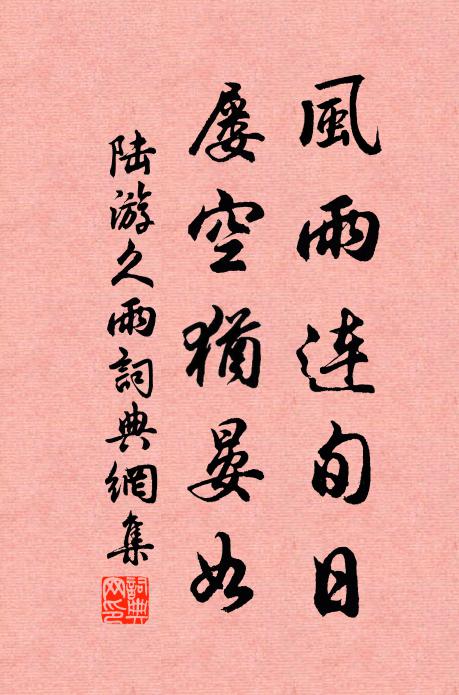 風雨連旬日
屡空猶晏如
陆游久雨詞典網集
詞典网印